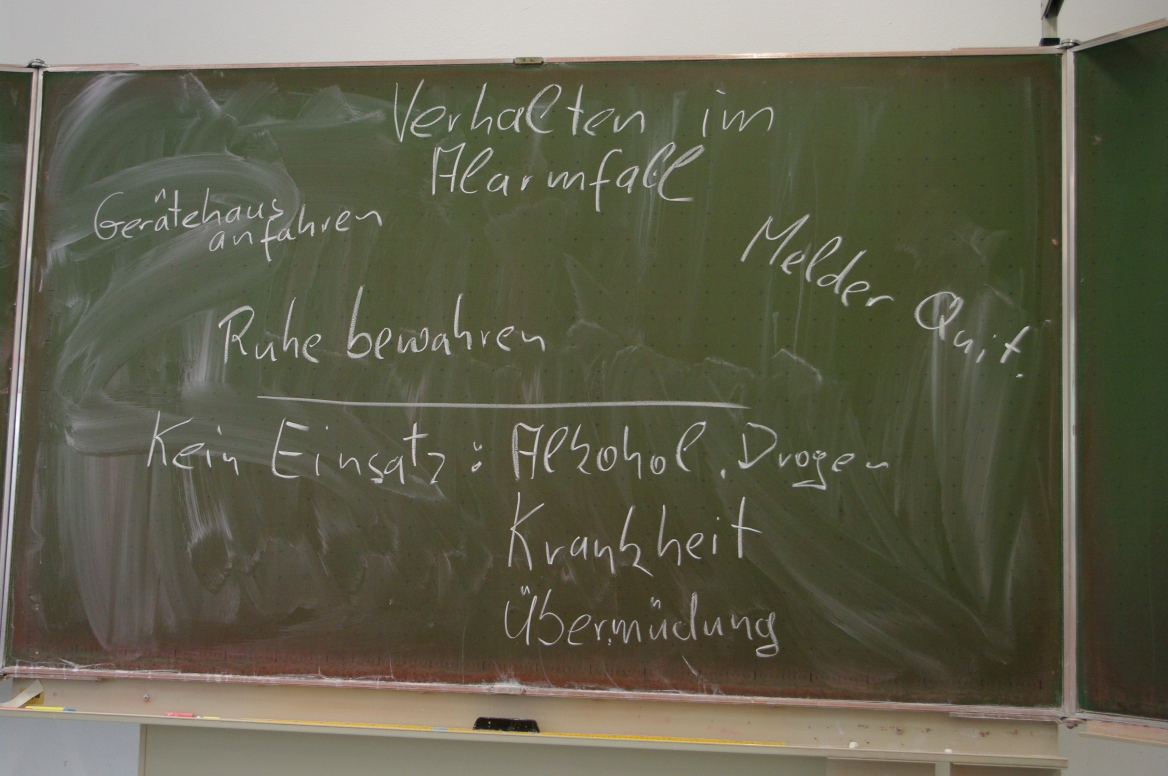 Verhalten im
Alarmfall
Gerätehaus
anfahren
Melder Quit.
Ruhe bewahren
Kein Einsatz: Alkohol, Drogen
Krankheit
Übermüdung